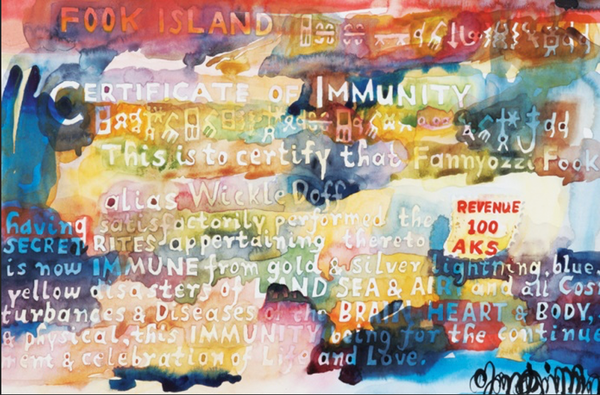 FOOK ISLAND
CERTIFICATE OF IMMUNITY
This is to certify that Fannyozzi Fook
alias Wickle Doff
having satisfactorily performed the
SECRET RITES appertaining thereto
is now IMMUNE from gold & silver lightning, blue,
yellow disasters of LAND SEA & AIR and all Cos
turbances & Diseases of the BRAIN, HEART & BODY,
& physical, this IMMUNITY being for the continue
ment & celebration of Life and Love.
REVENUE
100
AKS